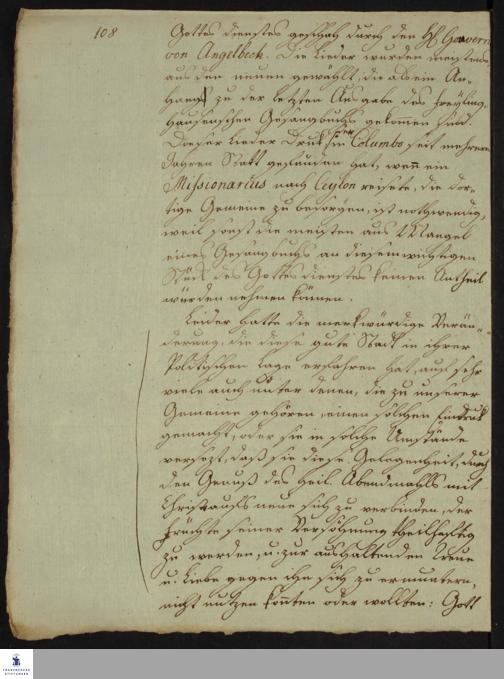 108
Gottes dienstes geschah durch den H Govern
von Angelbeck. Die Lieder wurden meistens
aus den neuen gewählt, die als ein An-
hang zu der letzten Ausgabe des Freyling-
hausenschen Gesangbuchs gekomen sind.
Dieser Lieder Druk hier in Columbo seit mehreren
Jahren Statt gefunden hat, wenn ein
Missionarius nach Ceylon reisete, die dor-
tige Gemeine zu besorgen, ist nothwendig,
weil sonst die meisten aus Mangel
eines Gesangbuchs an diesem wichtigen
Stük des Gottesdienstes keinen Antheil
würden nehmen können.
Leider hatte die merkwürdige Verän-
derung, die diese gute Stadt in ihrer
Politischen Lage erfahren hat, auf sehr
viele auch unter denen, die zu unserer
Gemeine gehören, einen solchen Eindruk
gemacht, oder sie in solche Umstände
versezt, daß sie diese Gelegenheit, durch
den Genuß des heil. Abendmahls mit
Christo aufs neue sich zu verbinden, der
Früchte seiner Versöhnung theilhaftig
zu werden, u. zur aushaltenden Treue
u. Liebe gegen ihn sich zu ermuntern,
nicht nutzen konten oder wollten: Gott
FRANCKESCHE
STIFTUNGEN